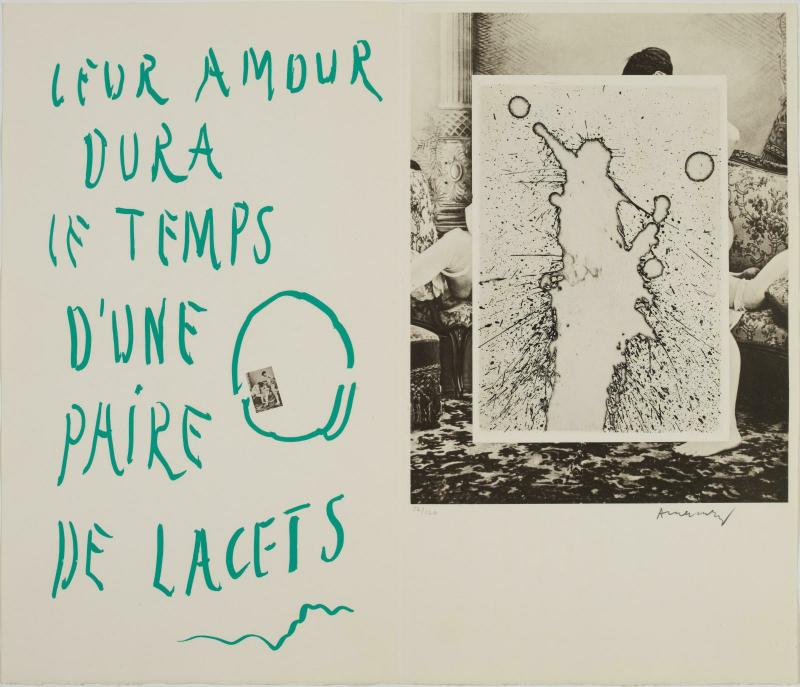 LEUR AMOUR
DURA
LE TEMPS
D'UNE
PAIRE
DE LACETS